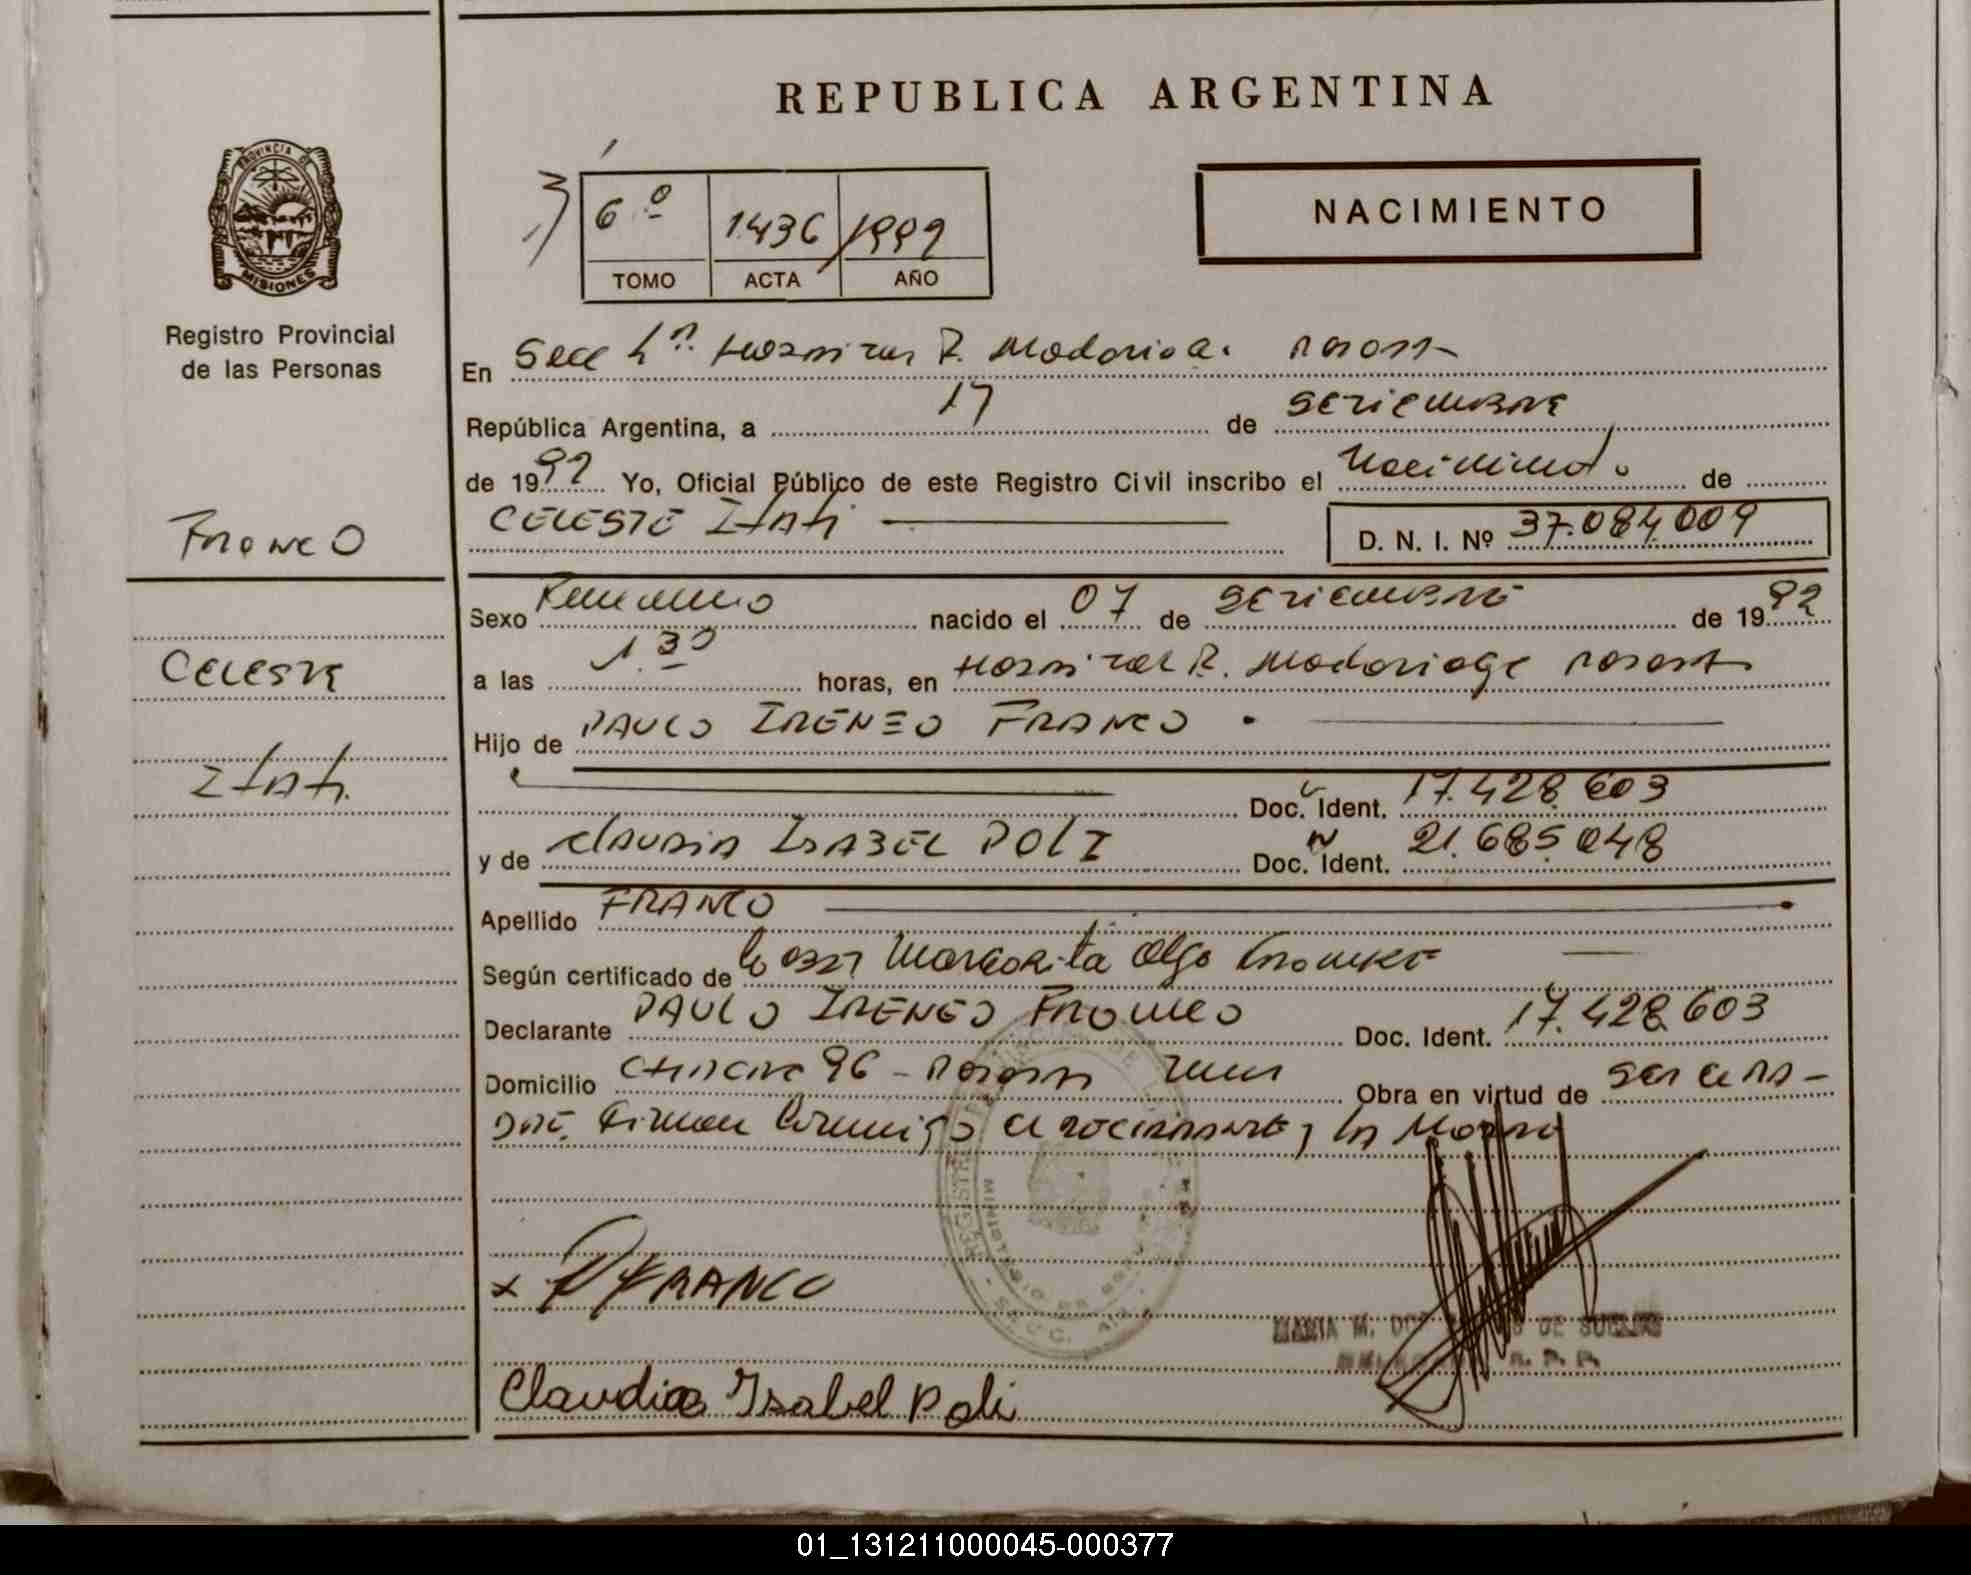 REPUBLICA ARGENTINA
PROVINCIA DE
MISIONES
Registro Provincial
de las Personas
6º 1436 1992
TOMO ACTA AÑO
NACIMIENTO
En Secc 1ª Hospital R. Madariaga.
República Argentina, a 17 de Septiembre
de 1992 Yo, Oficial Público de este Registro Civil inscribo el Nacimiento de
CELESTE ItAti D. N. I. Nº 37.084.009
FRANCO
Sexo Femenino nacido el 07 de Septiembre de 1992
CELESTE
a las 1.30 horas, en Hospital R. Madariaga
Hijo de PAULO IRENEO FRANCO
ItAti
Doc. Ident. 17.428.603
y de CLAUDIA ISABEL POLI Doc. Ident. 21.685.048
Apellido FRANCO
Según certificado de Margarita Olga
Declarante PAULO IRENEO FRANCO Doc. Ident. 17.428.603
Domicilio 96 - Obra en virtud de
Firman Conmigo el y la Madre
x FRANCO
MARIA M. DE
Claudia Isabel Poli
01_131211000045-000377